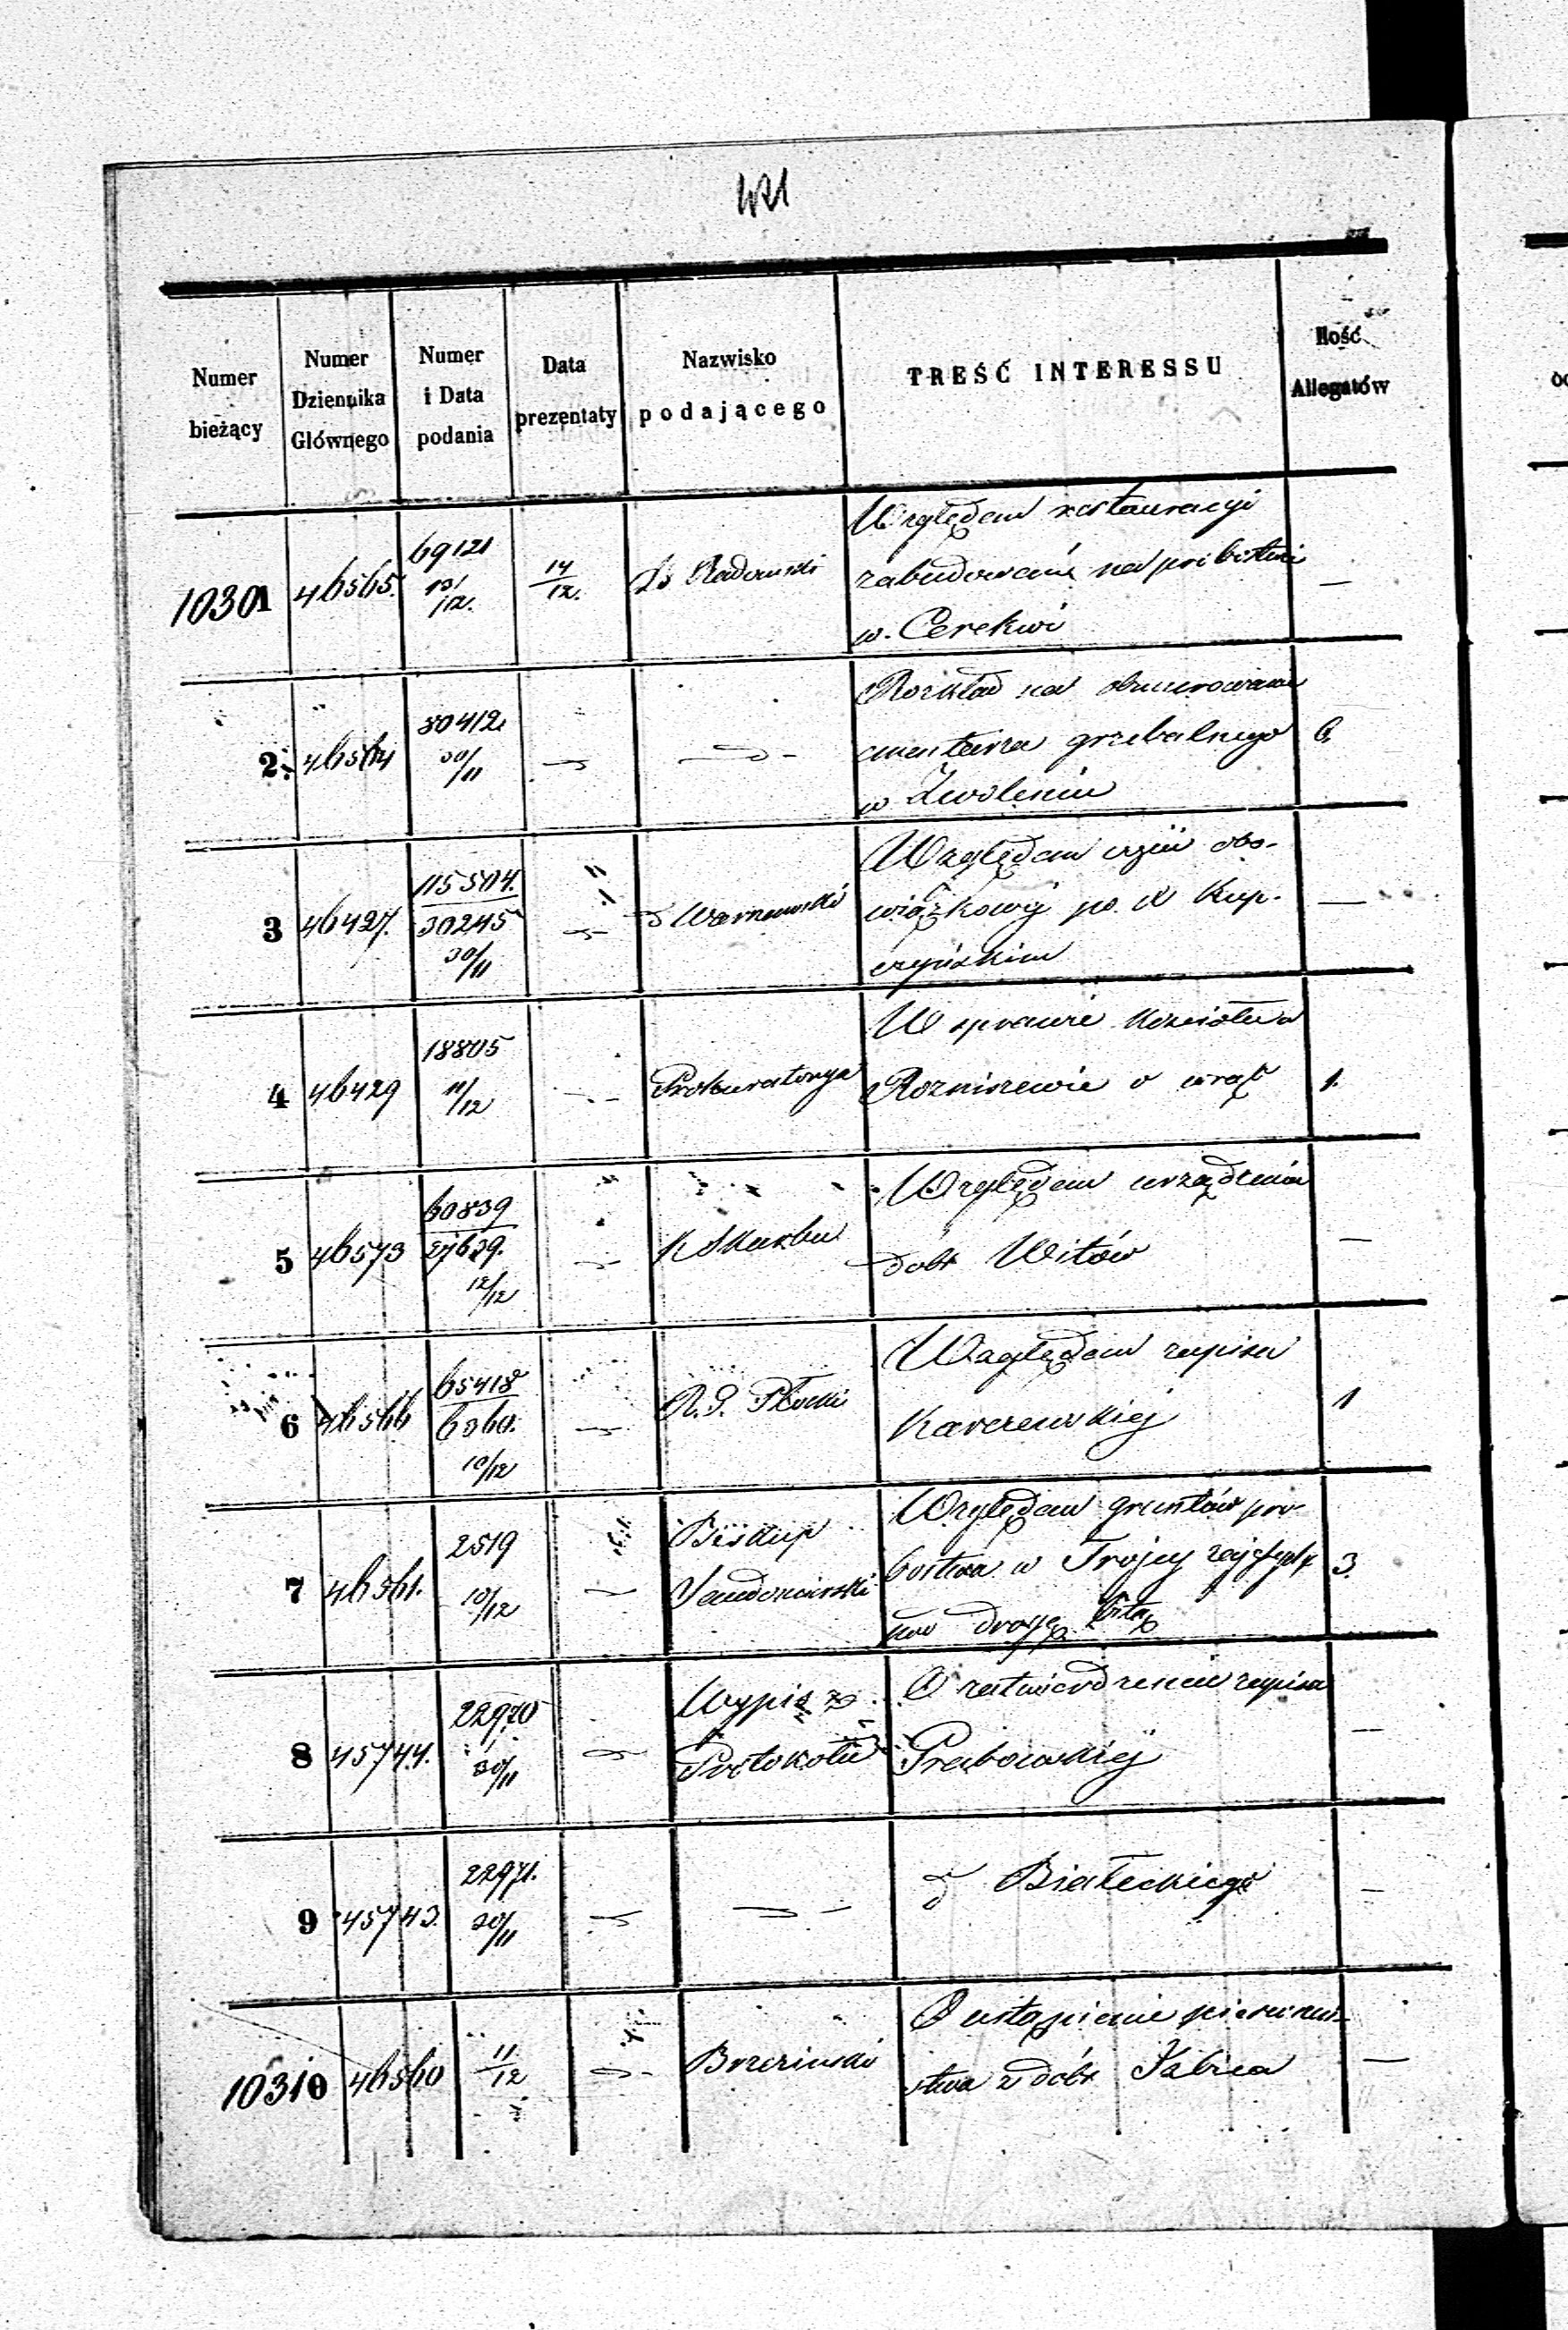 Numer bieżący
Numer Dziennika Głównego
Numer i Data podania
Data prezentaty
Nazwisko podającego
TREŚĆ INTERESSU
Ilość Allegatów
10301 46565. 69121 10/12. 14/12. Radomski
Względem restauracyi
zabudowań na probostwie
w. Cerekwi
—
2 80412 30/11
Rozkład na obmurowanie
cmentarza grzebalnego
w Zwoleniu
6.
3 46427. 115504. 30245 30/11 Warszawski
Względem części obo-
wiązkowéj po X Kup-
czyńskim
—
4 46429 18805 11/12 Prokuratorya
W sprawie Kościoła w
Rozniszewie o wrąb
1.
5 46573 60839 12/12 K Skarbu
Względem urządzenia
dóbr Witów
—
6 46566 65418 6360. 10/12 R. G. Płocki
Względem zapisu
Karczewskiej
1
7 46561. 2519 10/12
Biskup
Sandomirski
Względem gruntów pro-
bostwa w Trojcy zajętych
drogę bitą
3.
8 45744. 22970 30/11
Wypis z
Protokołu
O zatwierdzenie zapisu
Grabowskiéj
—
9 45743. 22971. 30/11
d Białeckiego
—
10310 46560 11/12 Brzezinski
O ustąpienie pierwszeń-
stwa z dóbr Izbica
—